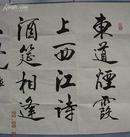 東道煙霞
上西江詩
酒筵相逢